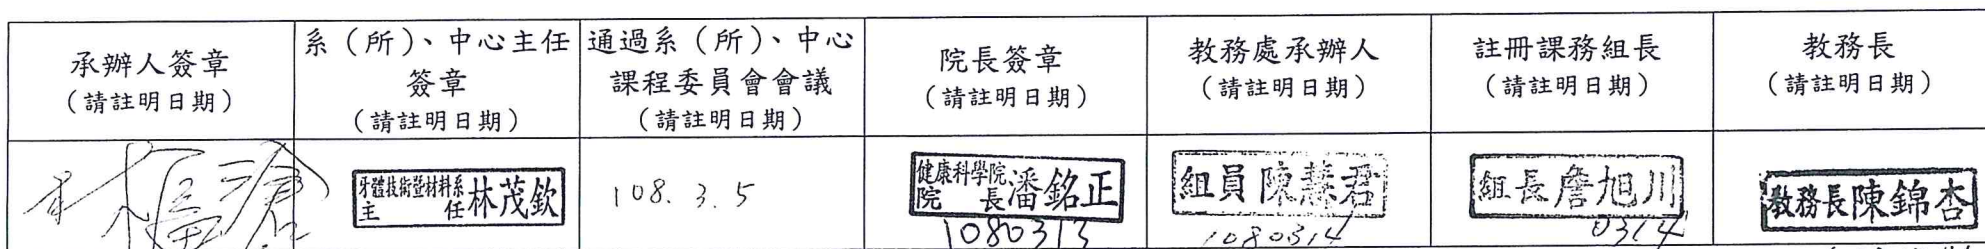 承辦人簽章
（請註明日期）
系（所）、中心主任
簽章
（請註明日期）
通過系（所）、中心
課程委員會會議
（請註明日期）
院長簽章
（請註明日期）
教務處承辦人
（請註明日期）
註冊課務組長
（請註明日期）
教務長
（請註明日期）
牙體技術暨材料系
主任 林茂欽
108. 3. 5
健康科學院
院長 潘銘正
1080313
組員 陳慧君
1080314
組長 詹旭川
0314
教務長 陳錦杏